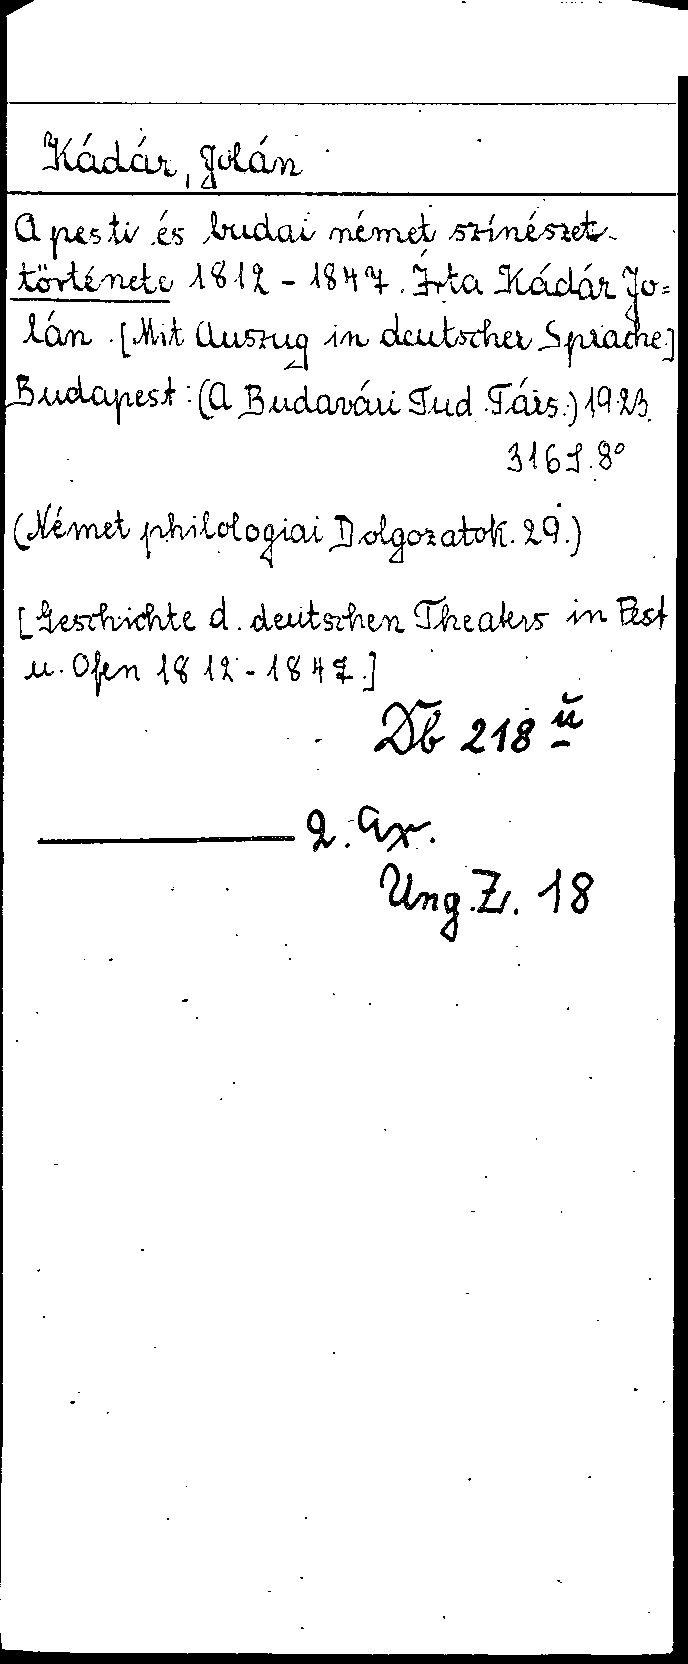 Kádár, Jolán
A pesti és budai német színészet
története 1812 - 1847. Írta Kádár Jo=
lán. [Mit Auszug in deutscher Sprache]
Budapest: (A Budavári Tud. Társ.) 1923.
316 S. 8°
(Német philologiai Dolgozatok. 29.)
[Geschichte d. deutschen Theaters in Pest
u. Ofen 1812 - 1847.]
Db 218 ü
——— 2. Ex.
Ung. Z. 18